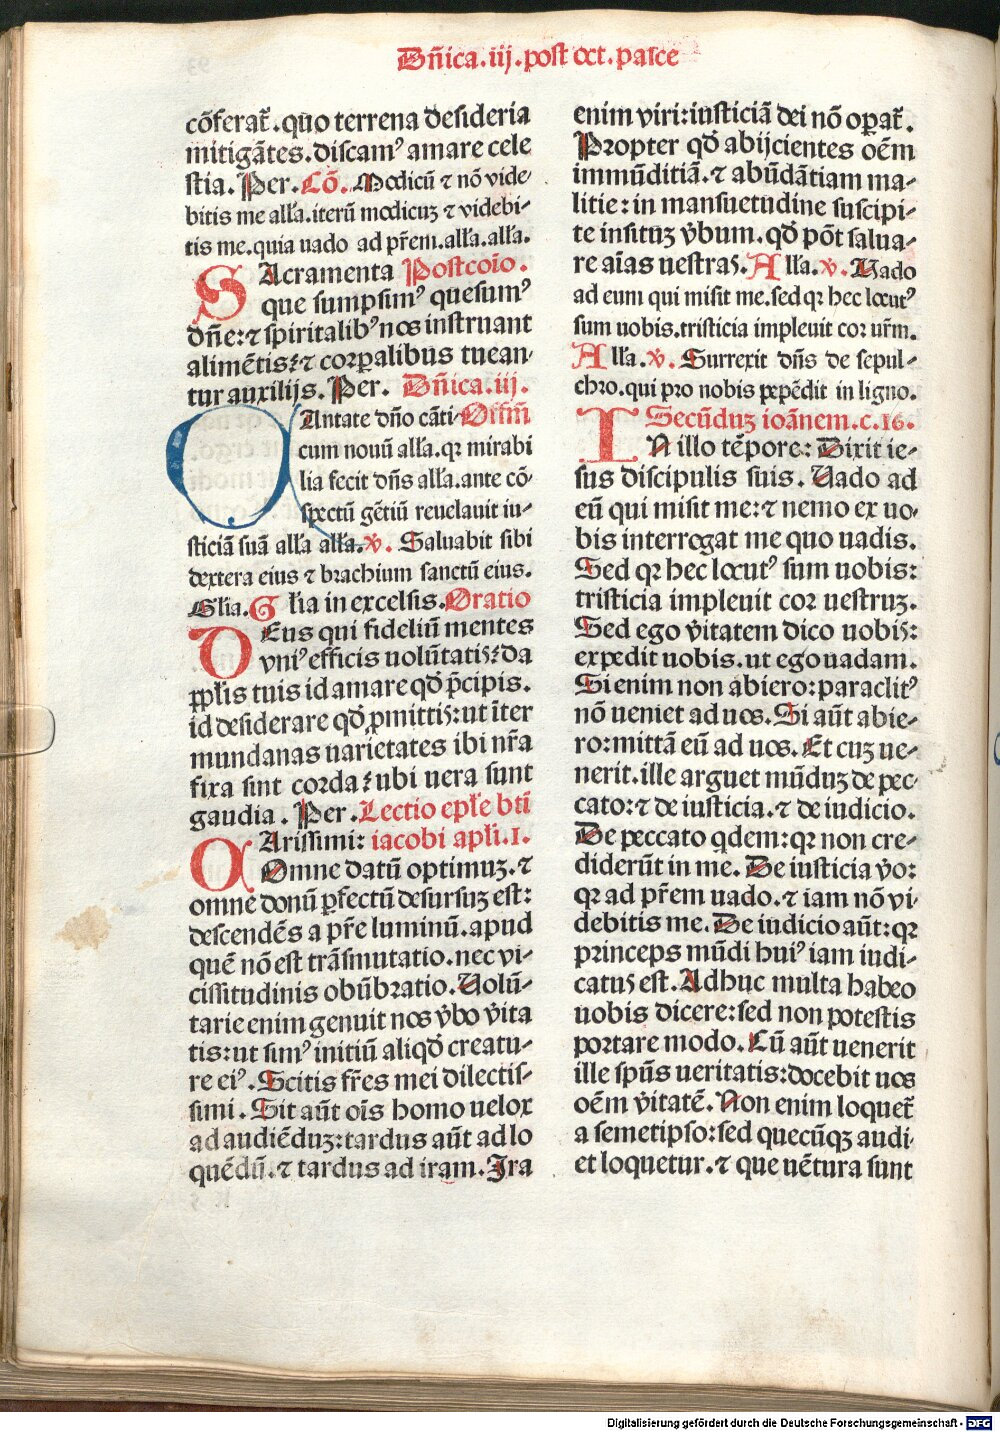 Dñica.iij.post oct.pasce
cõferat᷑.quo terrena desideria
mitigãtes.discamꝰ amare cele
stia.Per.Cõ.Modicũ ⁊ nõ vide⸗
bitis me alľa.iterũ modicuꝫ ⁊ videbi⸗
tis me.quia uado ad pr̃em.alľa.alľa.
SAcramenta Postcoĩo.
que sumpsimꝰ quesumꝰ
dñe:⁊ spiritalibꝰ nos instruant
alimẽtis:⁊ corꝑalibus tuean⸗
tur auxilijs.Per. Dñica.iij.
CAntate dño cãti⸗ Offm̃
cum nouũ alľa.qꝛ mirabi
lia fecit dñs alľa.ante cõ⸗
spectũ gẽtiũ reuelauit iu⸗
sticiã suã alľa alľa.v̓. Saluabit sibi
dextera eius ⁊ brachium sanctũ eius.
Gľia.Gľia in excelsis.Oratio
DEus qui fideliũ mentes
vniꝰ efficis uolũtatis:da
ppľis tuis id amare qđ p̃cipis.
id desiderare qđ ꝓmittis:ut ĩter
mundanas uarietates ibi nr̃a
fixa sint corda:ubi uera sunt
gaudia.Per.Lectio epľe bt̃i
CArissimi: iacobi apľi.1.
Omne datũ optimuꝫ.⁊
omne donũ ꝑfectũ desursuꝫ est:
descendẽs a pr̃e luminũ.apud
quẽ nõ est trãsmutatio.nec vi⸗
cissitudinis obũbratio.Uolũ⸗
tarie enim genuit nos v̓bo v̓ita
tis:ut simꝰ initiũ aliqđ creatu⸗
re eiꝰ.Scitis fr̃es mei dilectis⸗
simi.Sit aũt oĩs homo uelox
ad audiẽduꝫ:tardus aũt ad lo
quẽdũ.⁊ tardus ad iram.Ira
enim viri:iusticiã dei nõ oꝑat᷑.
Propter qđ abijcientes oẽm
immũditiã.⁊ abũdãtiam ma⸗
litie:in mansuetudine suscipi⸗
te insituꝫ v̓bum.qđ põt salua⸗
re aĩas uestras.Alľa.v̓.Uado
ad eum qui misit me.sed qꝛ hec locutꝰ
sum uobis.tristicia impleuit cor ur̃m.
Alľa.v̓. Surrexit dñs de sepul⸗
chro.qui pro nobis pepẽdit in ligno.
Secũduꝫ ioãnem.c.16.
IN illo tẽpore: Dixit ie⸗
sus discipulis suis. Uado ad
eũ qui misit me:⁊ nemo ex uo⸗
bis interrogat me quo uadis.
Sed qꝛ hec locutꝰ sum uobis:
tristicia impleuit cor uestruꝫ.
Sed ego v̓itatem dico uobis:
expedit uobis.ut ego uadam.
Si enim non abiero:paraclitꝰ
nõ ueniet ad uos.Si aũt abie⸗
ro:mittã eũ ad uos.Et cuꝫ ue⸗
nerit.ille arguet mũduꝫ de pec
cato:⁊ de iusticia.⁊ de iudicio.
De peccato qdem:qꝛ non cre⸗
diderũt in me.De iusticia v̓o:
qꝛ ad pr̃em uado.⁊ iam nõ vi⸗
debitis me.De iudicio aũt:qꝛ
princeps mũdi huiꝰ iam iudi⸗
catus est.Adhuc multa habeo
uobis dicere:sed non potestis
portare modo.Cũ aũt uenerit
ille spũs ueritatis:docebit uos
oẽm v̓itatẽ.Non enim loquet᷑
a semetipso:sed quecũqꝫ audi⸗
et loquetur.⁊ que uẽtura sunt
Digitalisierung gefördert durch die Deutsche Forschungsgemeinschaft - DFG